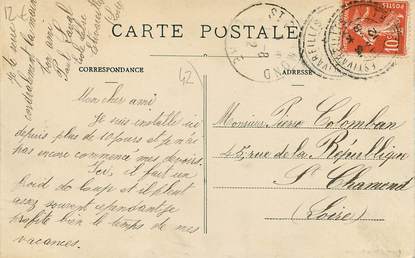 12€
CARTE POSTALE
CORRESPONDANCE
ADRESSE
42
10c
Mon cher ami.
Je suis installé ici
depuis plus de 10 jours et je n'ai
pas encore commencé mes devoirs.
Ici, il fait un
froid de loup et il pleut
assez souvent cependant je
profite bien le temps de mes
vacances.
Je te serre
cordialement la main
ton ami
Paul
Monsieur Pierre Colomban
45, rue de la République
St Chamond
(Loire)